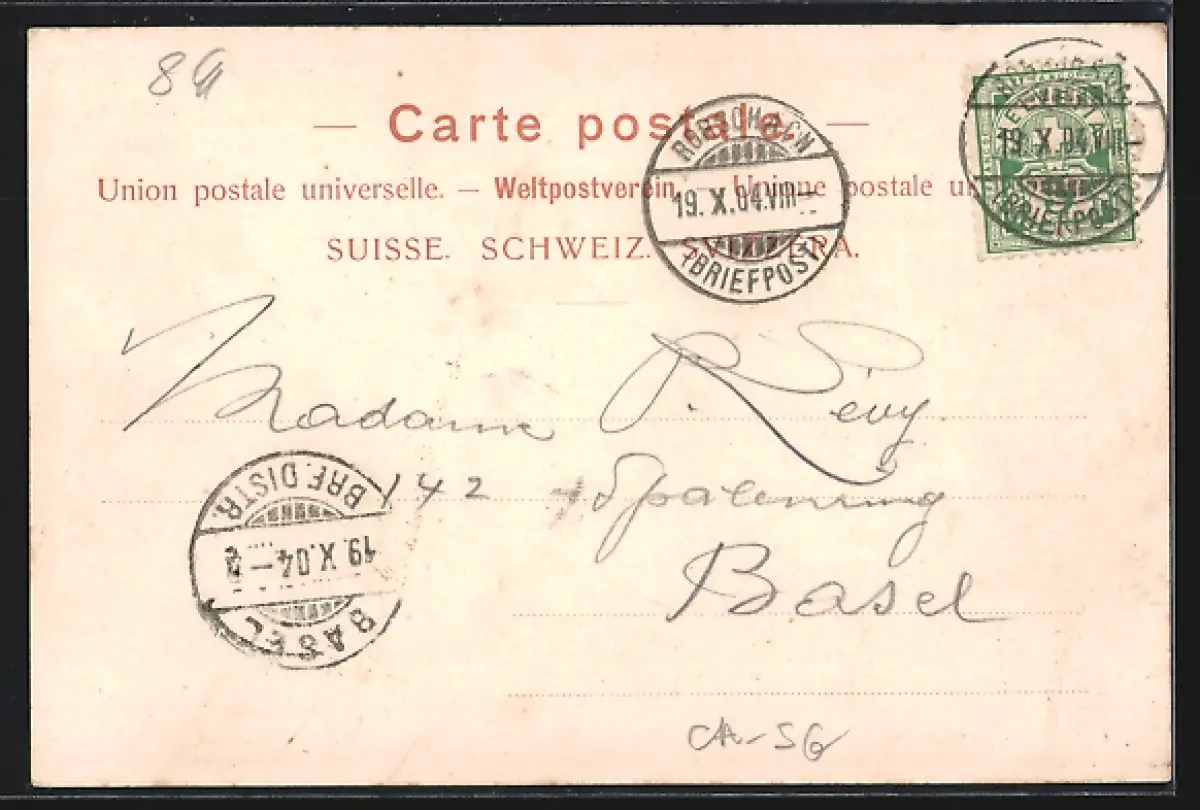 — Carte postale. —
Union postale universelle. — Weltpostverein. — Unione postale un
SUISSE. SCHWEIZ. SVIZZERA.
RORSCHACH
19. X. 04. VIII –
(BRIEFPOST)
19. X. 04. VIII –
(BRIEFPOST)
Madame P. Lévy.
142 Spalenring
Basel
BRF. DISTR.
19. X. 04 –
BASEL